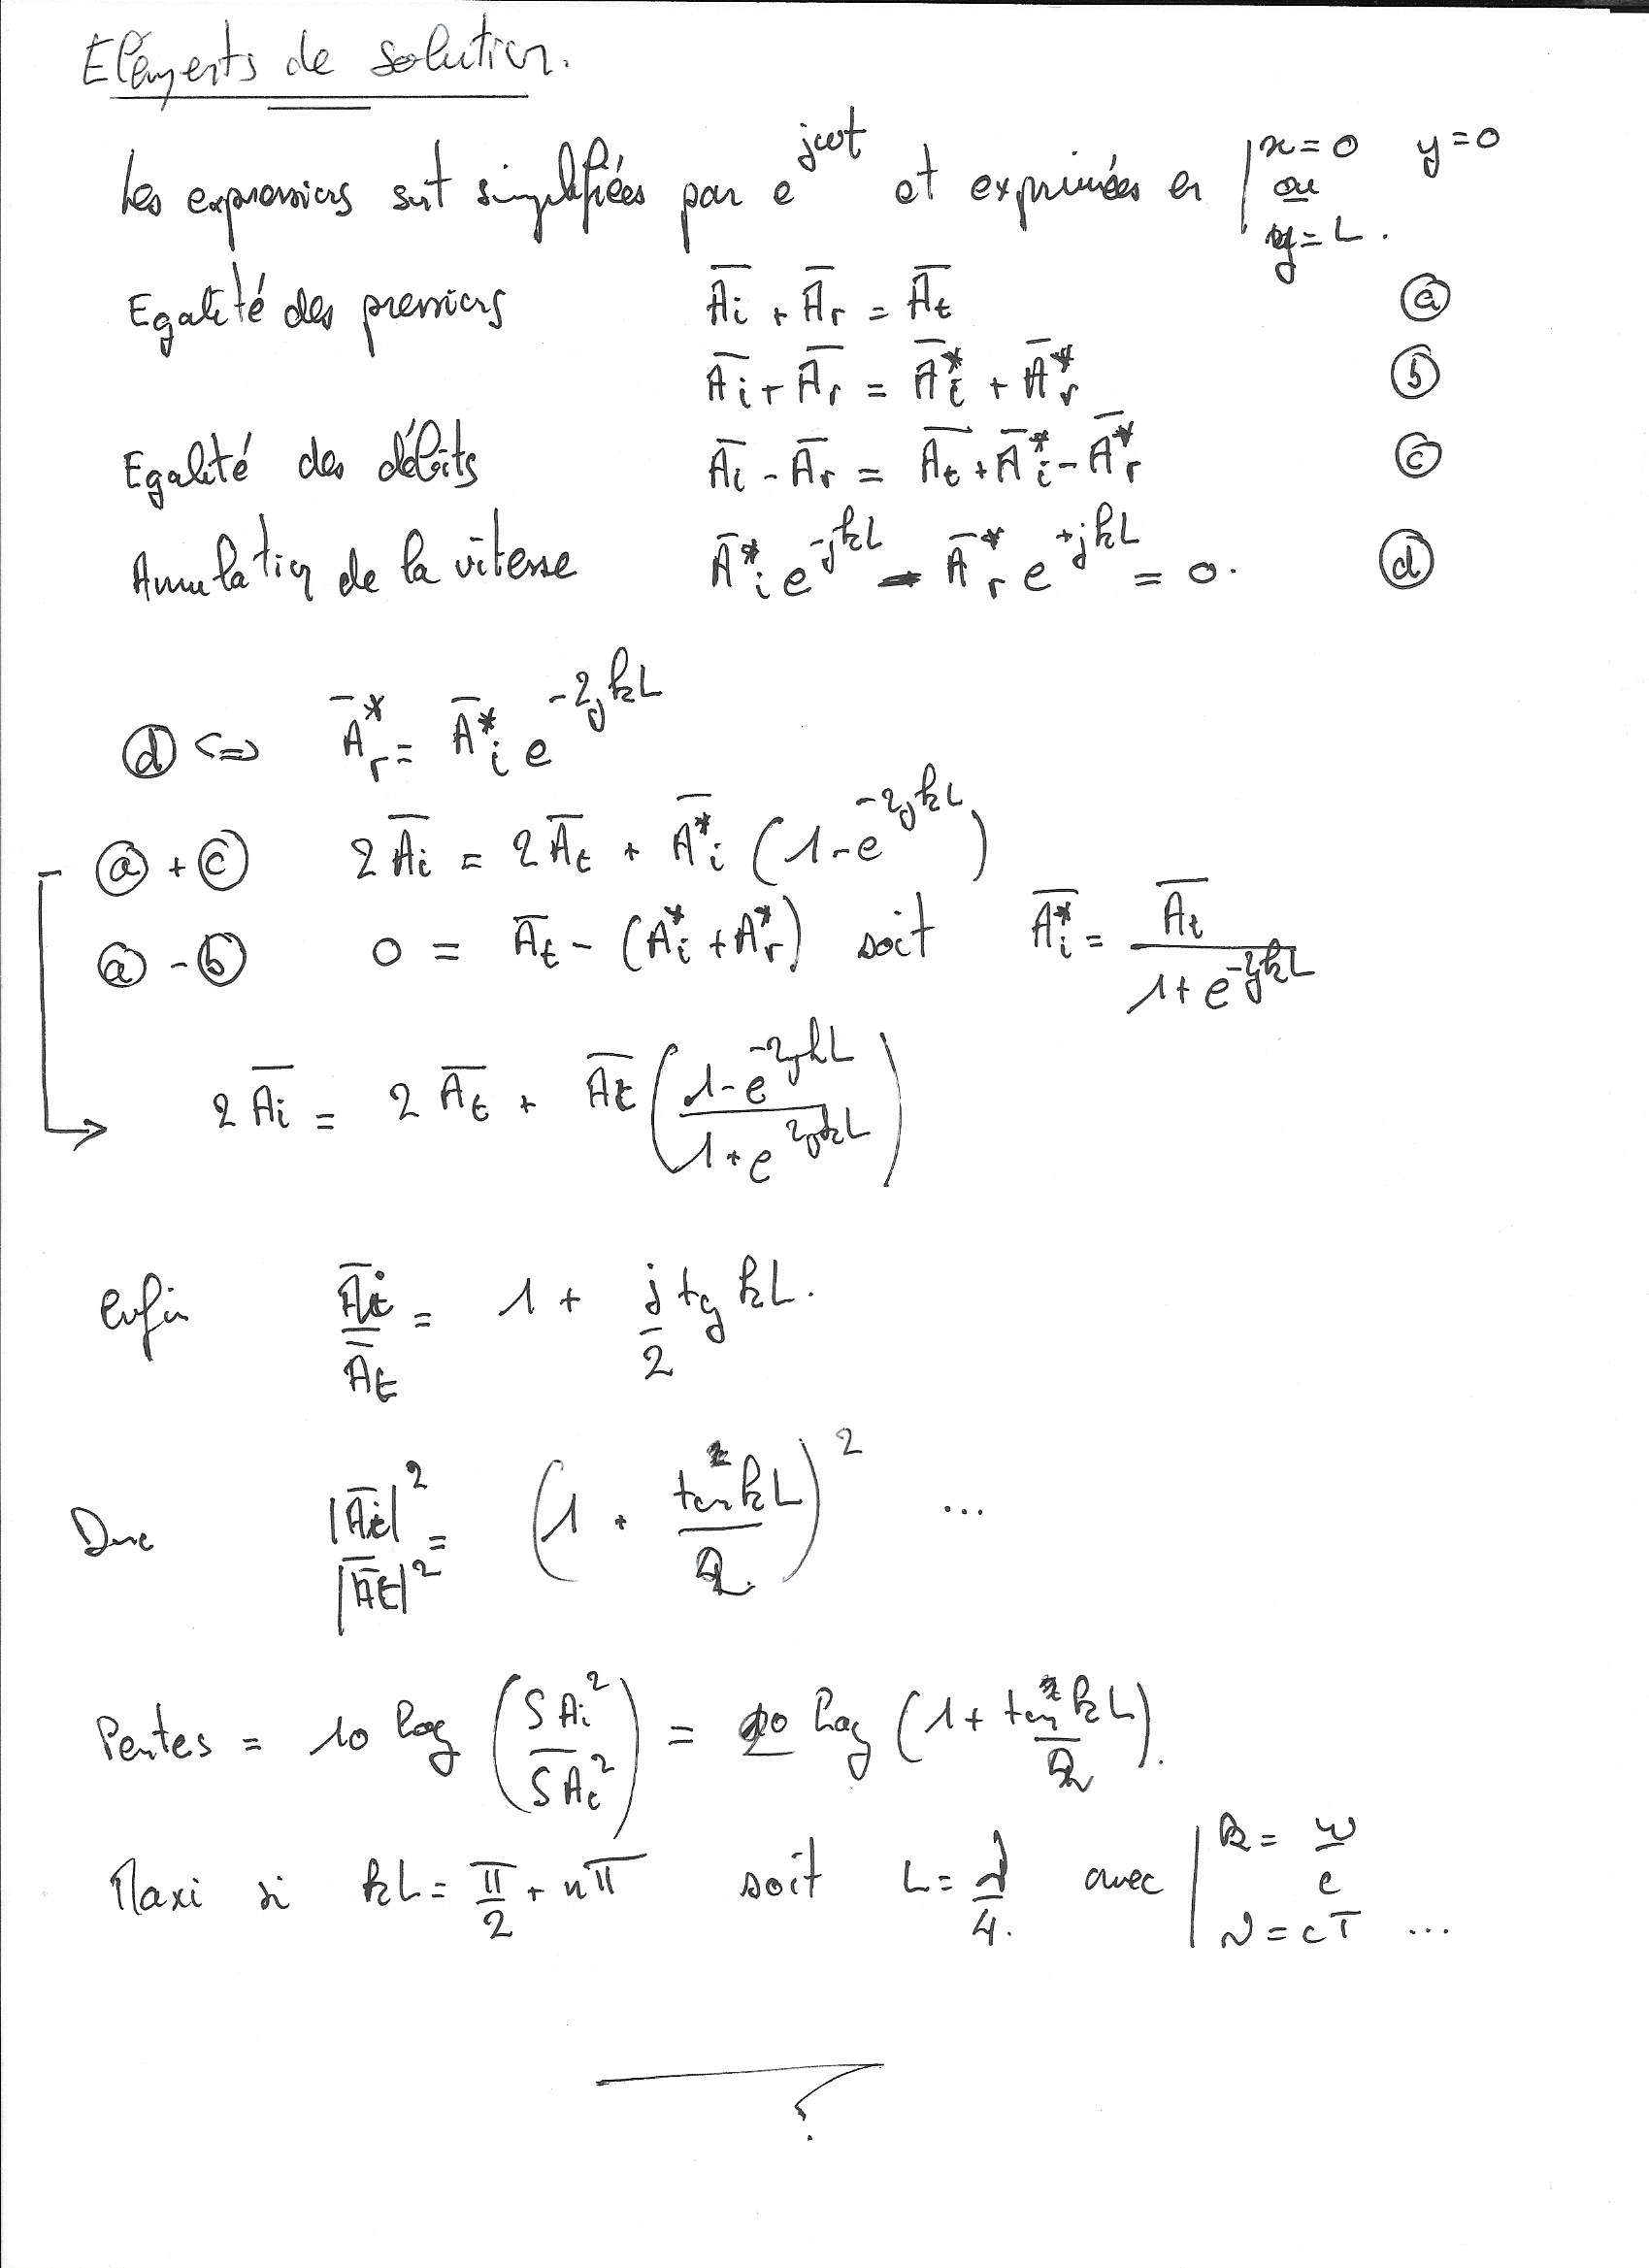 Eléments de solution.
Les expressions sont simplifiées par e^{jωt} et exprimées en | x=0 y=0
ou
y=L.
Egalité des pressions Āi + Ār = Āt (a)
Āi + Ār = Ā*i + Ā*r (b)
Egalité des débits Āi - Ār = Āt + Ā*i - Ā*r (c)
Annulation de la vitesse Ā*i e^{-jkL} - Ā*r e^{+jkL} = 0. (d)
(d) <=> Ā*r = Ā*i e^{-2jkL}
(a) + (c) 2Āi = 2Āt + Ā*i (1-e^{-2jkL})
(a) - (b) 0 = Āt - (A*i + A*r) soit Ā*i = Āt / (1+e^{-2jkL})
2Āi = 2Āt + Āt ((1-e^{-2jkL}) / (1+e^{2jkL}))
enfin Āi / Āt = 1 + j/2 tg kL.
Donc |Āi|² / |Āt|² = (1 + tan²kL / 2)² ...
Pertes = 10 log (S Ai² / S At²) = 10 log (1 + tan²kL / 2).
Maxi si kL = π/2 + nπ soit L = λ/4. avec | k = ω/c
λ = cT ...